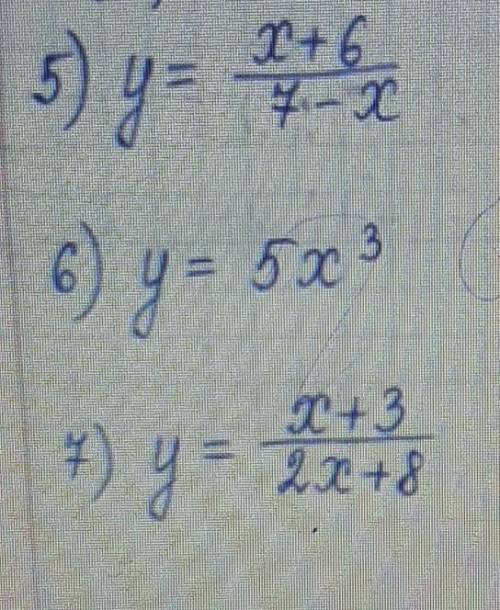 5) y = \frac{x+6}{7-x}
6) y = 5x³
7) y = \frac{x+3}{2x+8}